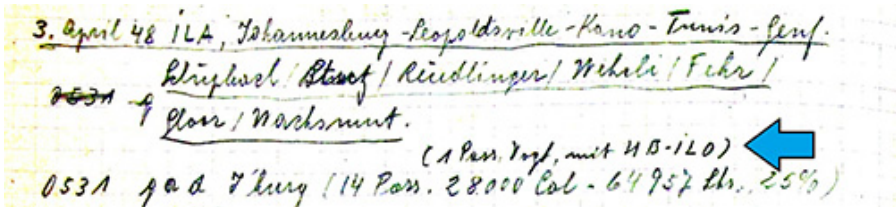 3. April 48 ILA, Johannesburg - Leopoldsville - Kano - Tunis - Genf.
/ / Reudlinger / Wehrli / Fehr /
0531 g
Gloor / Wachsmut.
(1 Pass. Vogt, mit HB-ILO)
0531 g a d J'burg (14 Pass. 28000 Cal - 64957 Lbs. 25%)